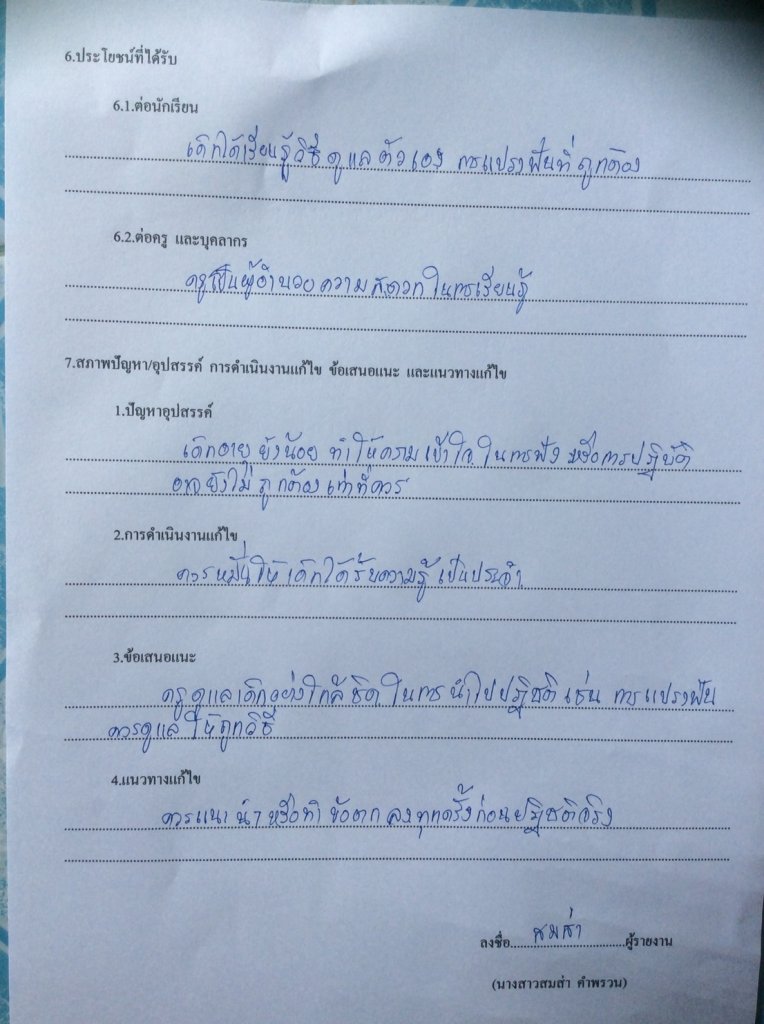 6.ประโยชน์ที่ได้รับ
6.1.ต่อนักเรียน
เด็กได้เรียนรู้วิธีดูแลตัวเอง การแปรงฟันที่ถูกต้อง
6.2.ต่อครู และบุคลากร
ครูเป็นผู้อำนวยความสะดวกในการเรียนรู้
7.สภาพปัญหา/อุปสรรค์ การดำเนินงานแก้ไข ข้อเสนอแนะ และแนวทางแก้ไข
1.ปัญหาอุปสรรค์
เด็กอายุยังน้อย ทำให้ความเข้าใจในการฟัง หรือการปฏิบัติ
อาจยังไม่ถูกต้องเท่าที่ควร
2.การดำเนินงานแก้ไข
ควรหมั่นให้เด็กได้รับความรู้เป็นประจำ
3.ข้อเสนอแนะ
ครูดูแลเด็กอย่างใกล้ชิดในการนำไปปฏิบัติ เช่น การแปรงฟัน
ควรดูแลให้ถูกวิธี
4.แนวทางแก้ไข
ควรแนะนำหรือทำข้อตกลงทุกครั้งก่อนปฏิบัติจริง
ลงชื่อ สมส่า ผู้รายงาน
(นางสาวสมส่า คำพรวน)